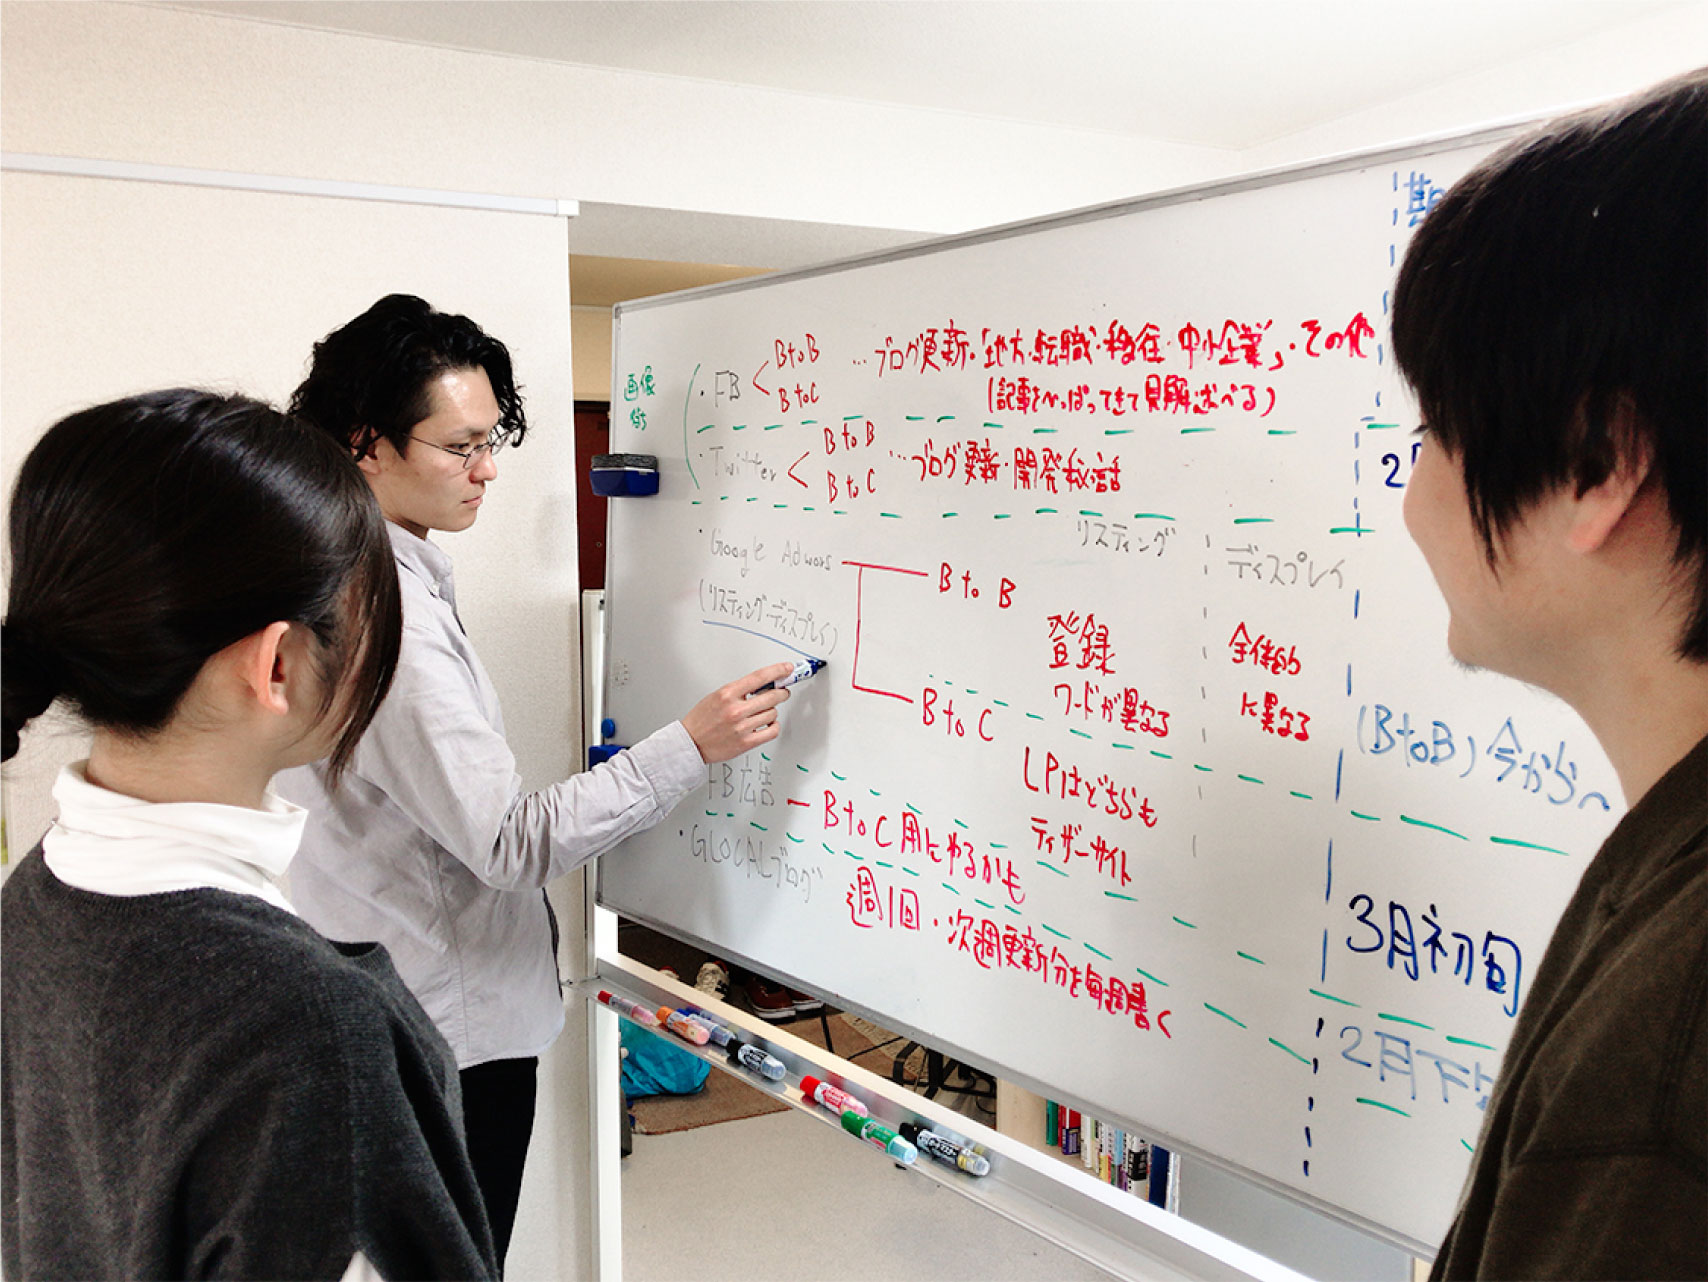 期
画像
・FB
BtoB
BtoC
…ブログ更新・「地方・転職・移住・中小企業」・その他
(記事をひっぱってきて見解述べる)
・Twitter
BtoB
BtoC
…ブログ更新・開発秘話
・Google Adwors
(リスティング・ディスプレイ)
リスティング
ディスプレイ
BtoB
BtoC
登録
ワードが異なる
全体的
に異なる
LPはどちらも
ティザーサイト
(BtoB)今から〜
FB広告
BtoC用にやるかも
・GLOCALブログ
週1回・次週更新分を毎週書く
3月初旬
2月下